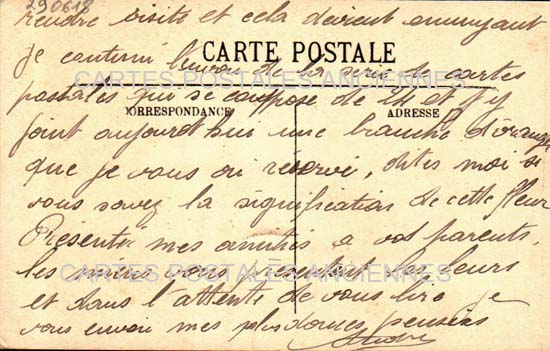 290618
rendre visite et cela devient ennuyant
CARTE POSTALE
je continu l'envoi de la série de cartes
CARTES POSTALES ANCIENNES
postales qui se compose de et j'y
CORRESPONDANCE
ADRESSE
joint aujourd'hui une branche d'oranger
que je vous ai réservé, dites moi si
vous savez la signification de cette fleur
Présenter mes amitiés a vos parents,
les miens vous présentent les leurs
CARTES POSTALES ANCIENNES
et dans l'attente de vous lire je
vous envoie mes plus douces pensées